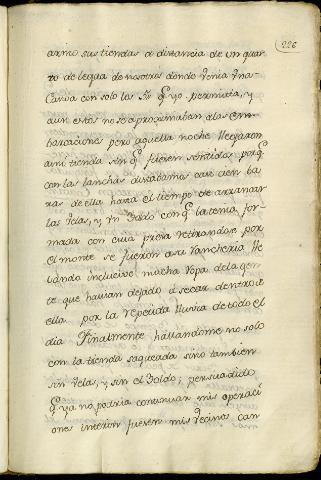 226
armo sus tiendas a distancia de un quar
to de legua de nosotros donde venia una
Canoa con solo las que yo permitia, y
aun estas no se aproximaban a las em
barcaciones pero aquella noche llegaron
a mi tienda sin q fuesen sentidos, porq
con las lanchas distabamos casi cien ba
ras de ella hasta el tiempo de arrancar
las Velas, y un Toldo con q la tenia for
mada con cuia presa retirandose por
el monte se fueron a su rancheria lle
vando inclusive mucha ropa de la gen
te que havian dejado a secar dentro de
ella por la repetida lluvia de todo el
dia. Finalmente hallandome no solo
con la tienda saqueada sino tambien
sin Velas, y sin el Toldo; persuadido
q ya no podria continuar mis operaci
ones interin fuesen mis vecinos can